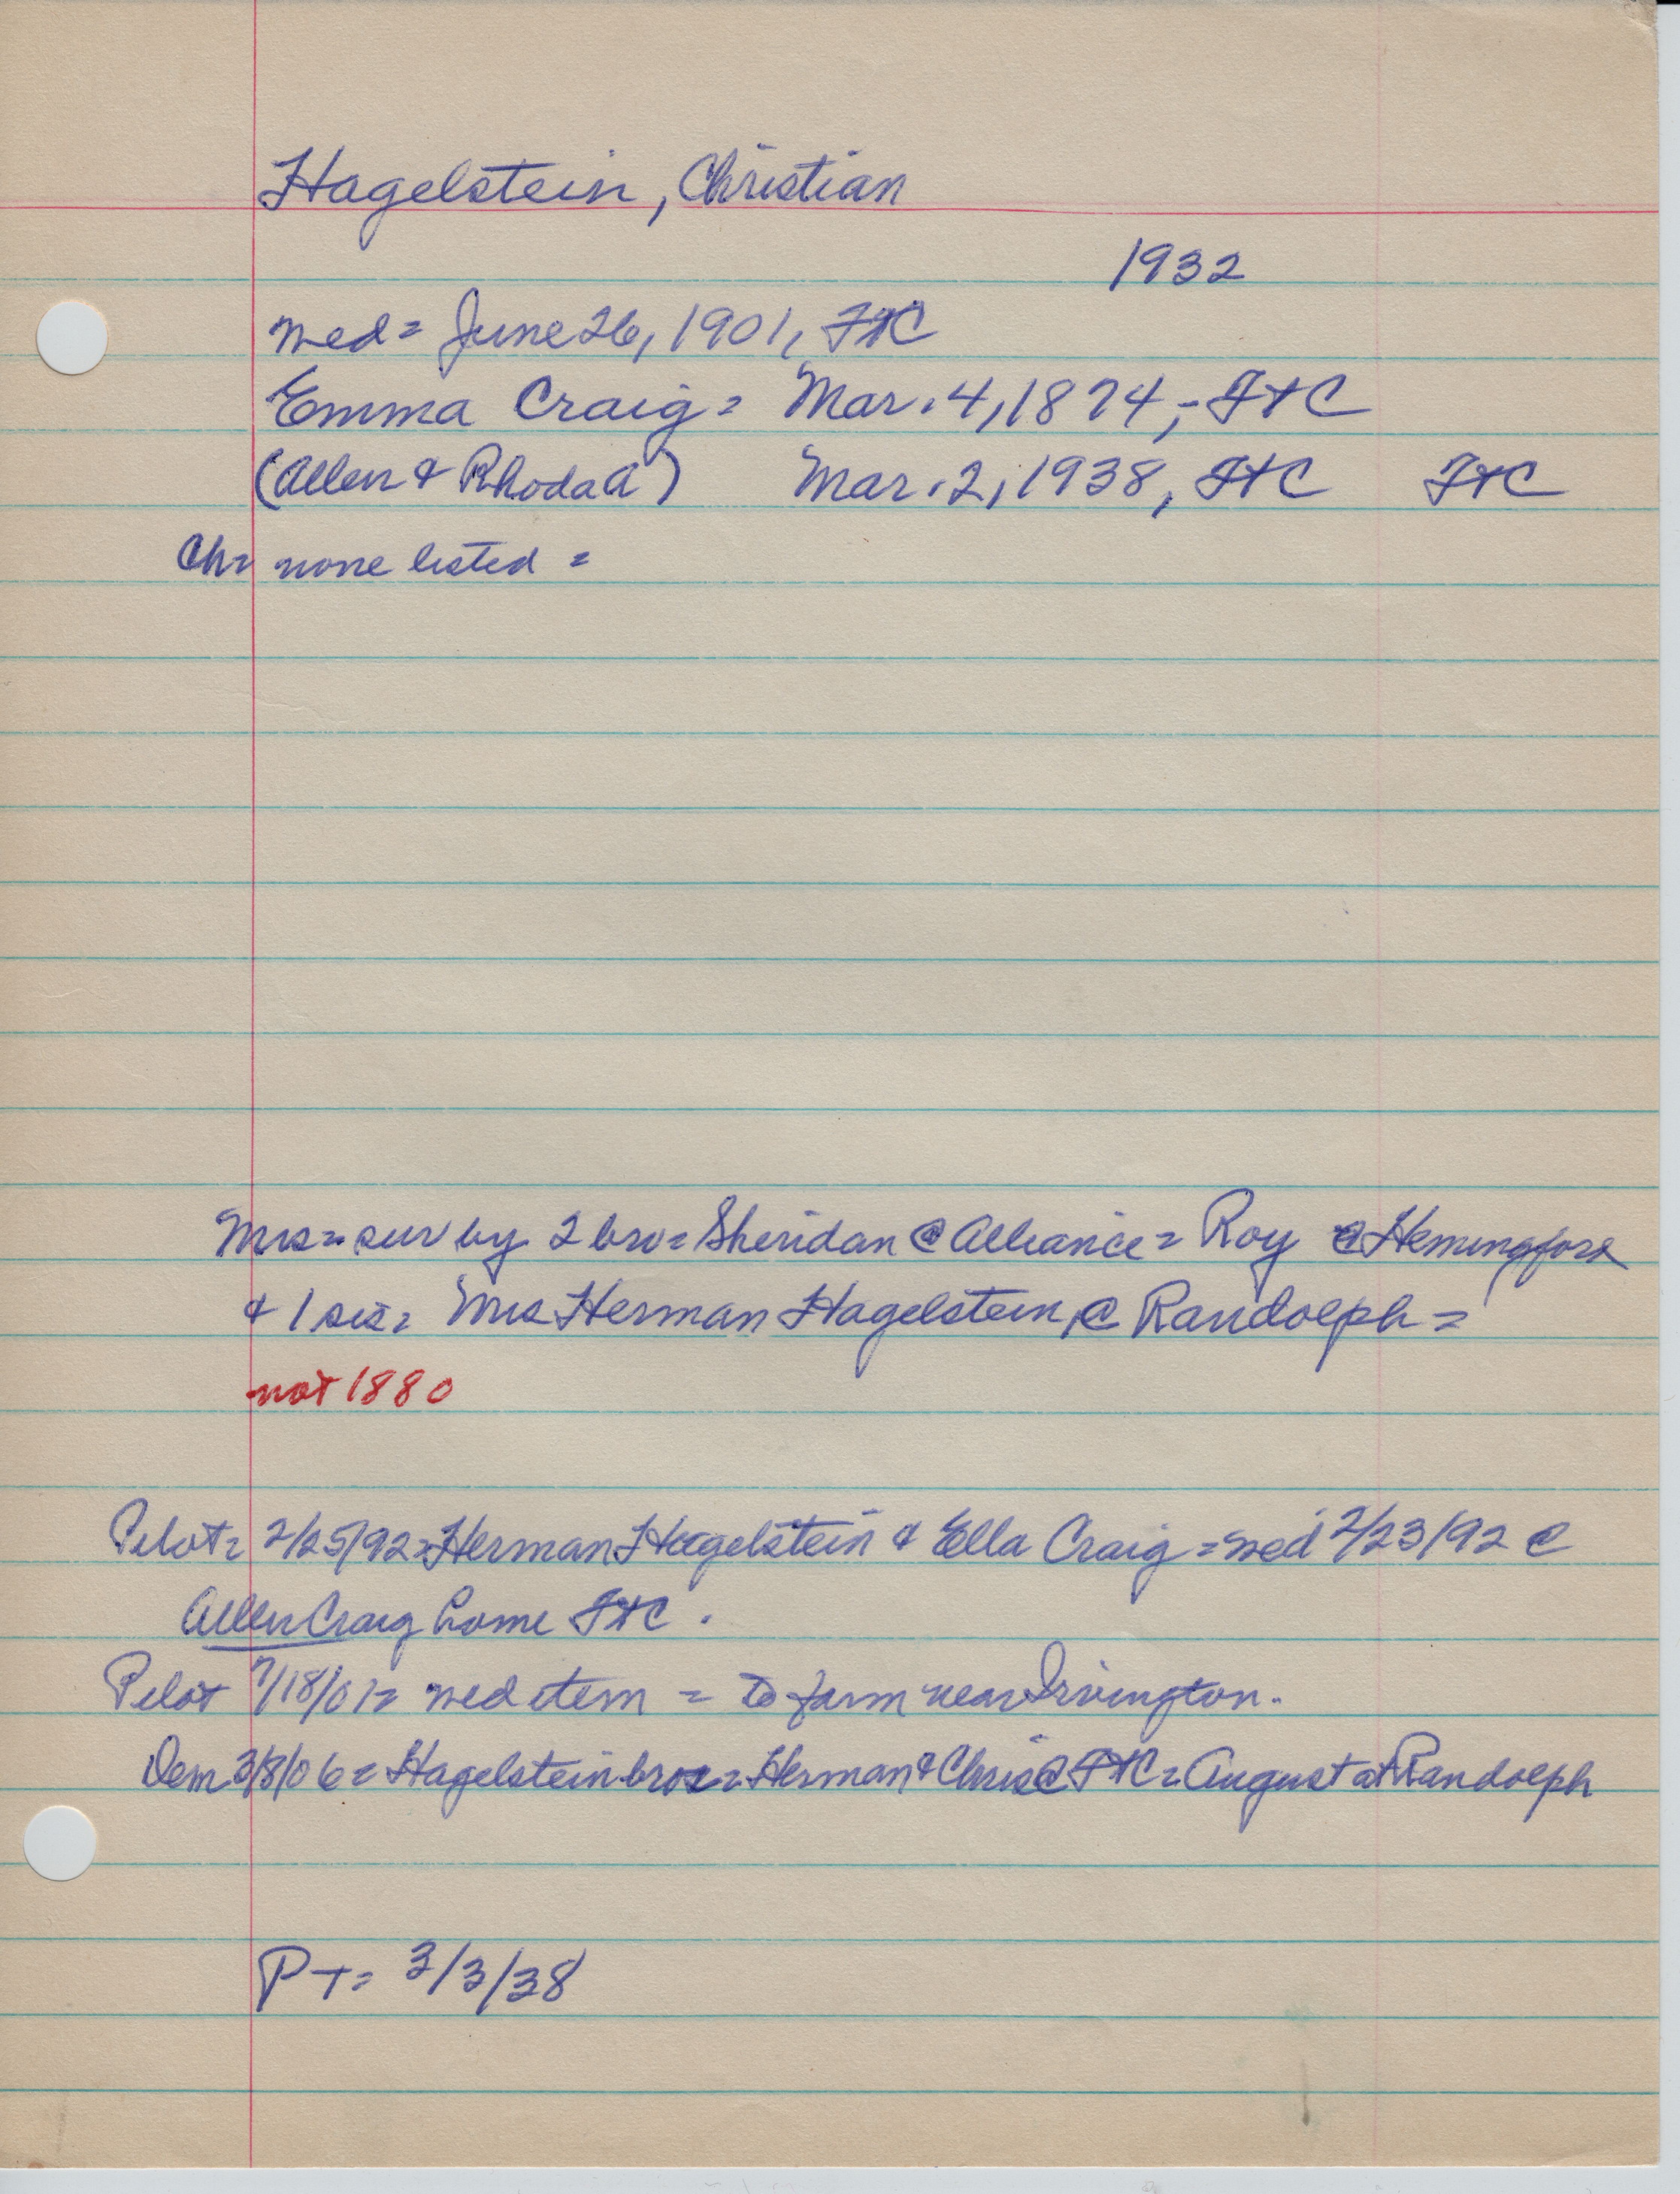 Hagelstein, Christian
1932
wed = June 26, 1901, FtC
Emma Craig = Mar. 4, 1874, - FtC
(Allen & Rhoda A) Mar. 2, 1938, FtC FtC
Ch = none listed =
Mrs = sur by 2 bro = Sheridan @ Alliance = Roy @ Hemingford
& 1 sis = Mrs Herman Hagelstein, @ Randolph =
not 1880
Pilot = 2/25/92 = Herman Hagelstein & Ella Craig = wed 2/23/92 @
Allen Craig home FtC .
Pilot 7/18/01 = wed item = to farm near Irvington.
Dem 3/8/06 = Hagelstein bros = Herman & Chris @ FtC = August at Randolph
PT = 3/3/38